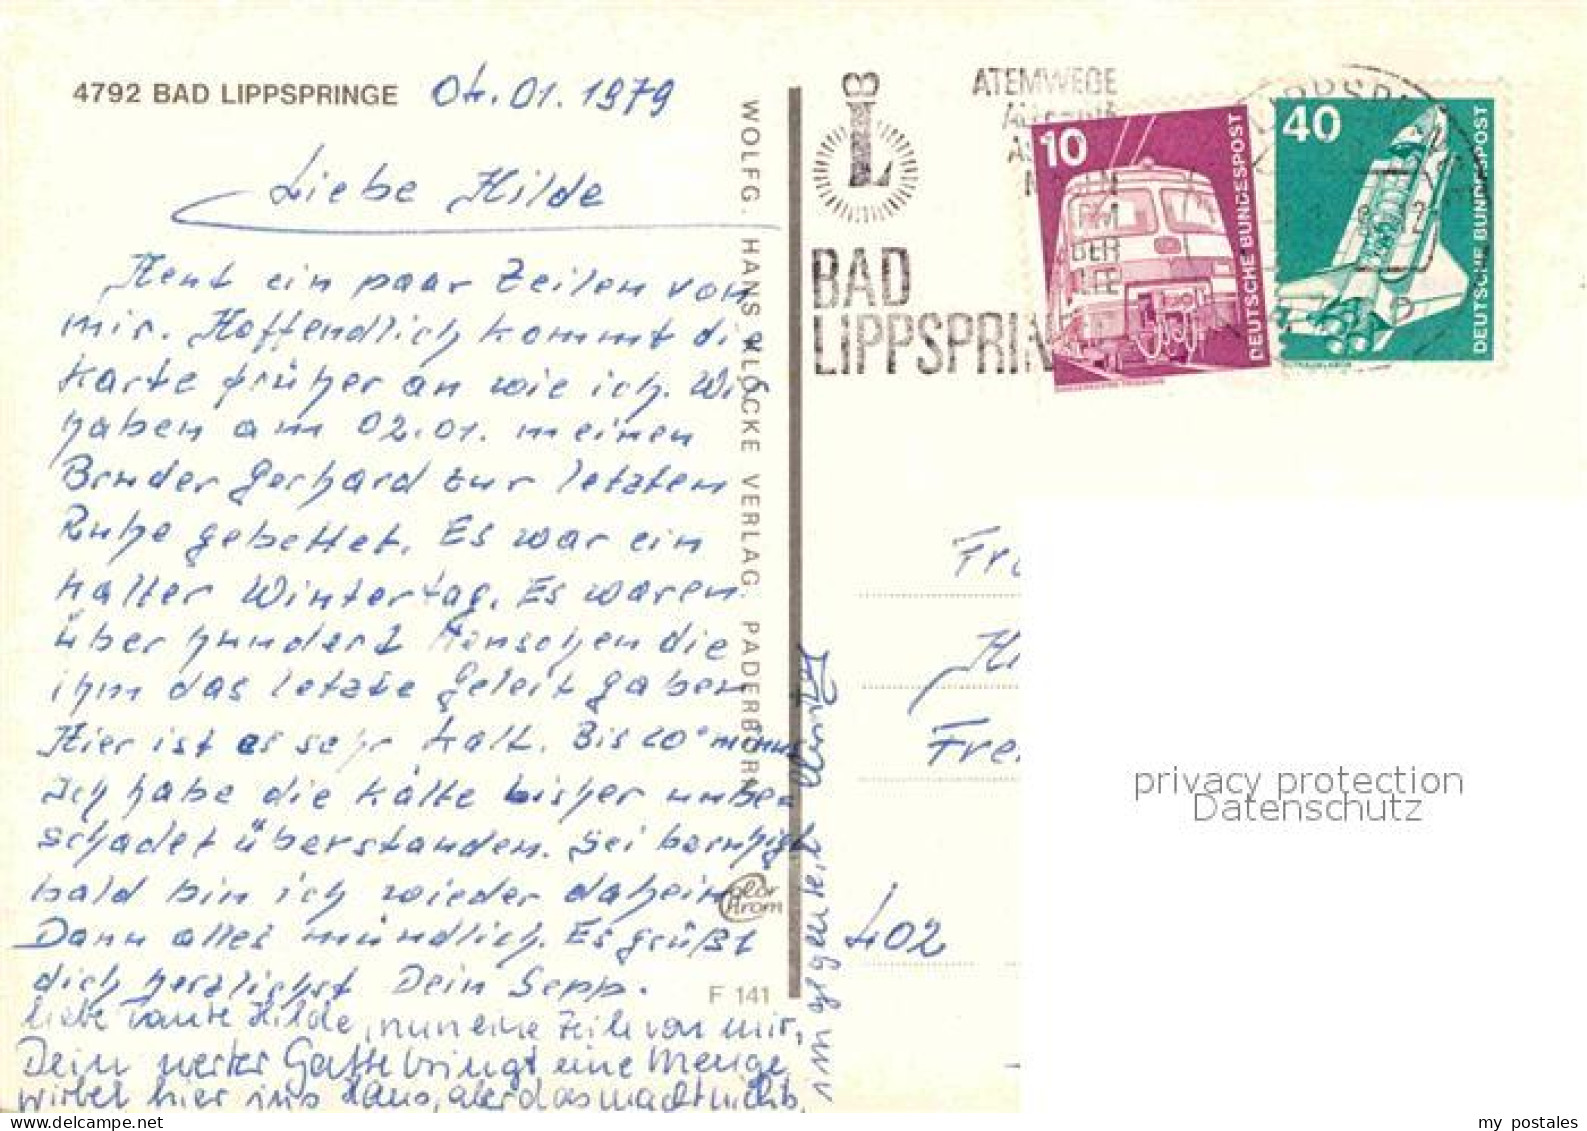 4792 BAD LIPPSPRINGE 04.01.1979
Liebe Hilde
Heut ein paar Zeilen von
mir. Hoffendlich kommt di
Karte früher an wie ich. Wir
haben am 02.01. meinen
Bruder Gerhard zur letzten
Ruhe gebettet. Es war ein
kalter Wintertag. Es waren
über hundert Menschen die
ihm das letzte Geleit gaben
Hier ist es sehr kalt. Bis 20° minus
Ich habe die Kälte bisher unbe=
schadet überstanden. Sei beruhigt
bald bin ich wieder daheim
Dann alles mündlich. Es grüßt
dich herzlichst Dein Sepp.
liebe Tante Hilde, nun eine Zeile von mir,
Dein werter Gatte bringt eine Menge
wirbel hier ins Haus, aber das macht nichts,
WOLFG. HANS KLOCKE VERLAG PADERBORN
Color
Chrom
F 141
L
B
BAD
LIPPSPRIN
ATEMWEGE
10
DEUTSCHE BUNDESPOST
40
DEUTSCHE BUNDESPOST
LIPPSPR
Fr
H
Fre
402
privacy protection
Datenschutz
my postales